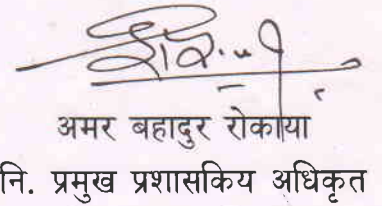 अमर बहादुर रोकाया
नि. प्रमुख प्रशासकिय अधिकृत